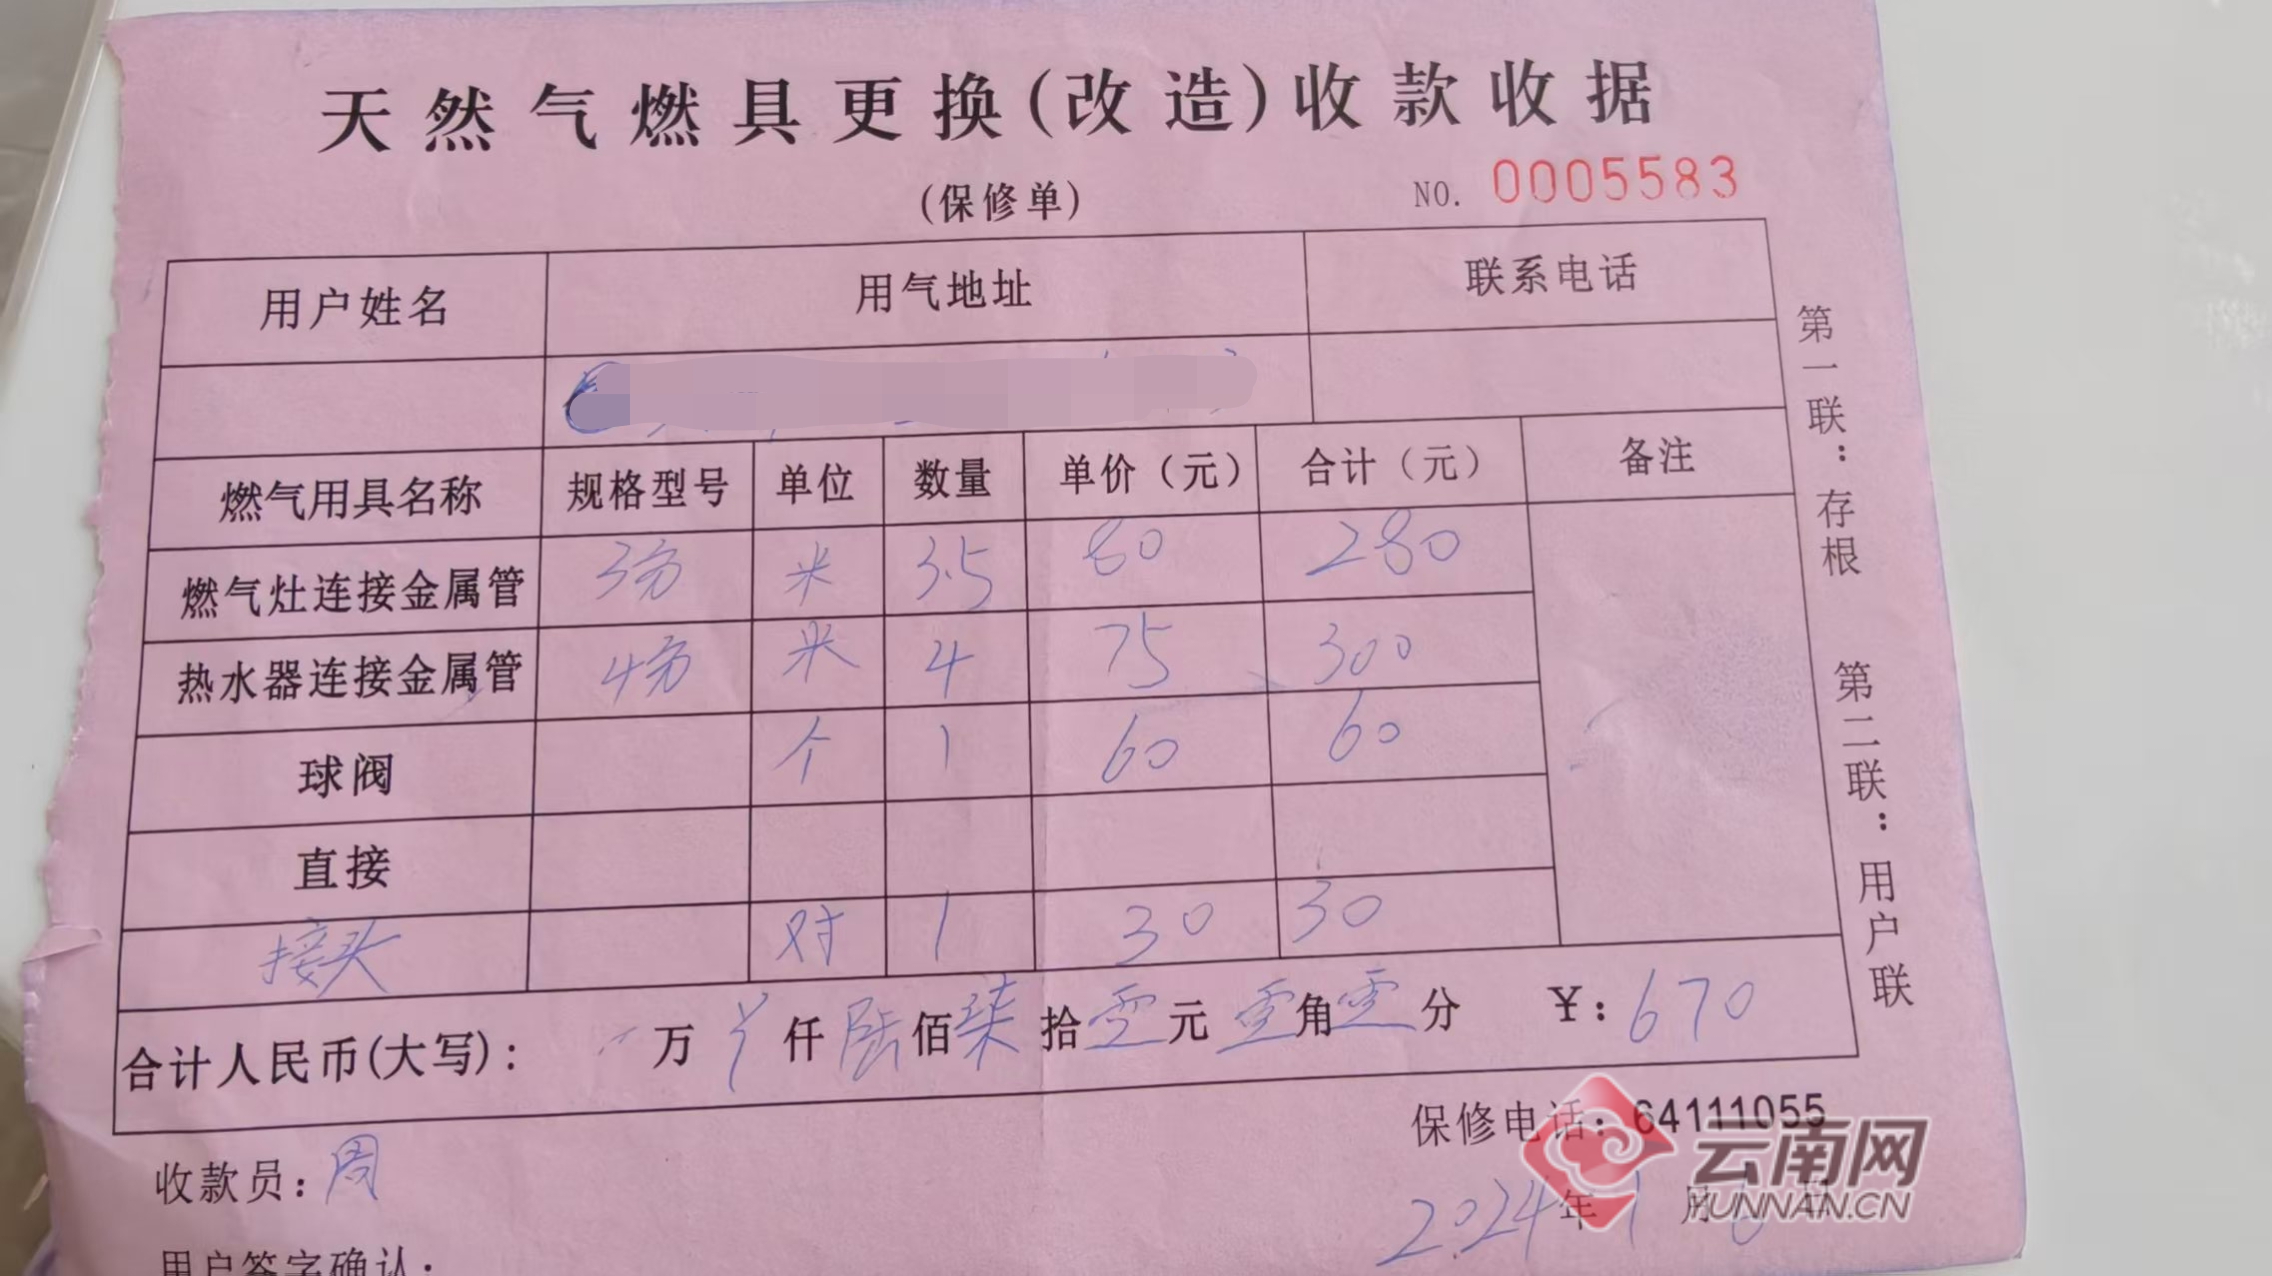 天然气燃具更换(改造)收款收据
(保修单)
NO. 0005583
用户姓名 用气地址 联系电话
燃气用具名称 规格型号 单位 数量 单价（元） 合计（元） 备注
燃气灶连接金属管 3分 米 3.5 80 280
热水器连接金属管 4分 米 4 75 300
球阀 个 1 60 60
直接
接头 对 1 30 30
合计人民币(大写)： 万 仟 陆 佰 柒 拾 零 元 零 角 零 分 ￥：670
第一联：存根 第二联：用户联
保修电话：64111055
收款员：周
2024年1月 日
用户签字确认：
云南网
YUNNAN.CN